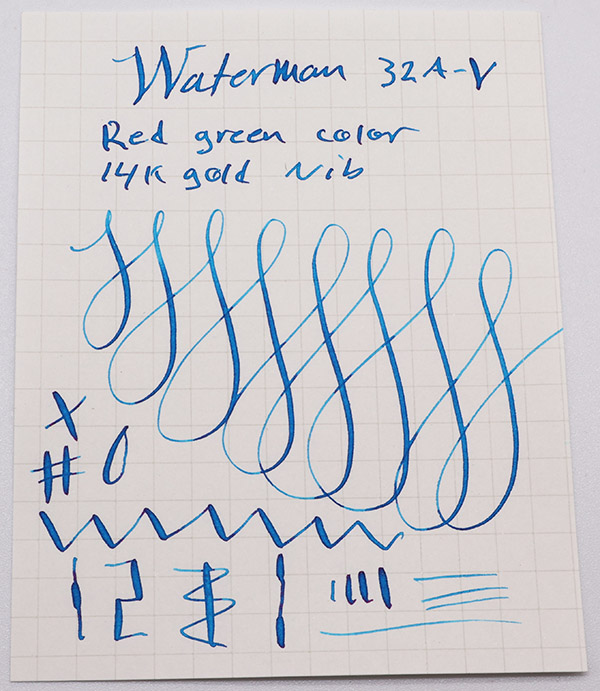 Waterman 32A-V
Red green color
14K gold Nib
X
# 0